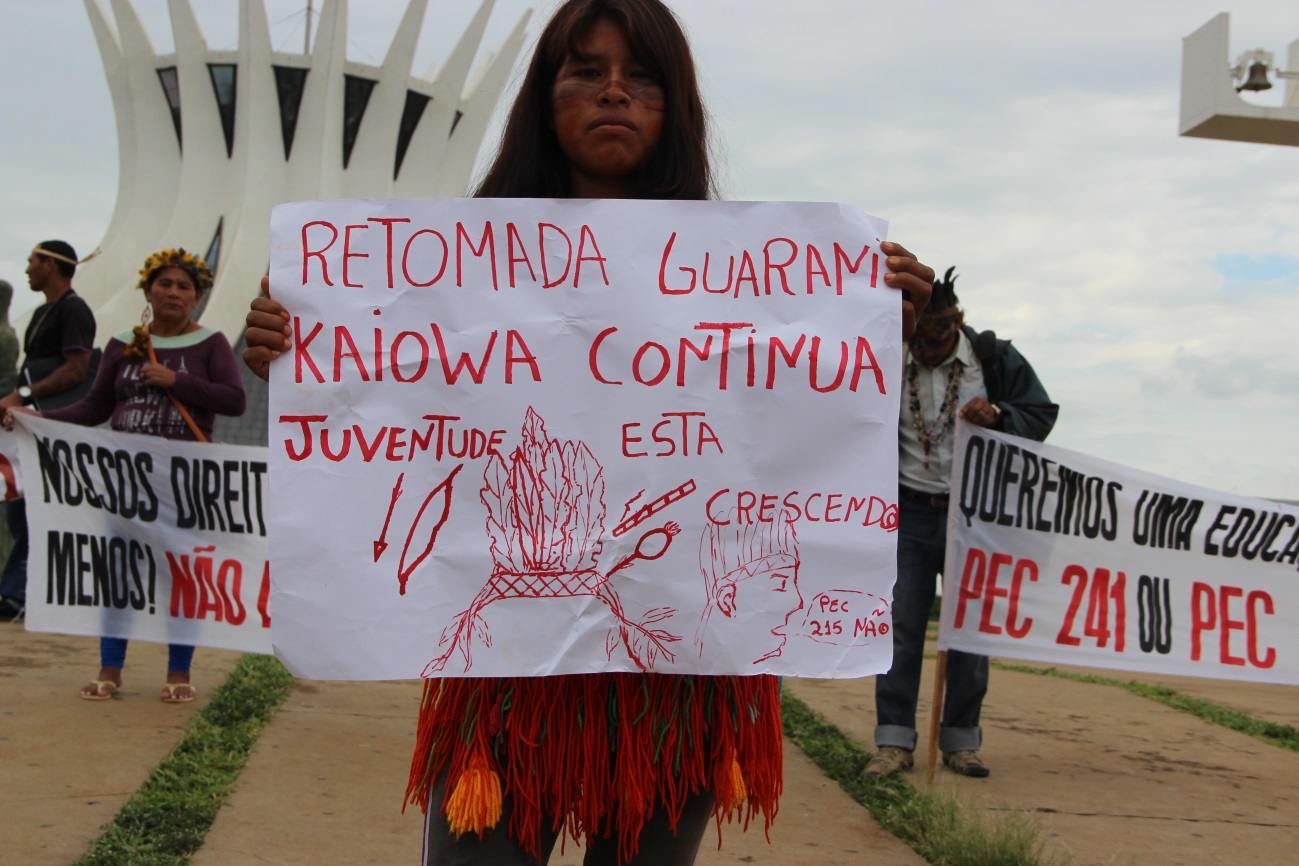 RETOMADA GUARANI
KAIOWA CONTINUA
JUVENTUDE ESTA
CRESCENDO
PEC
215 NÃO
NOSSOS DIREIT
MENOS! NÃO
QUEREMOS UMA EDUCA
PEC 241 OU PEC